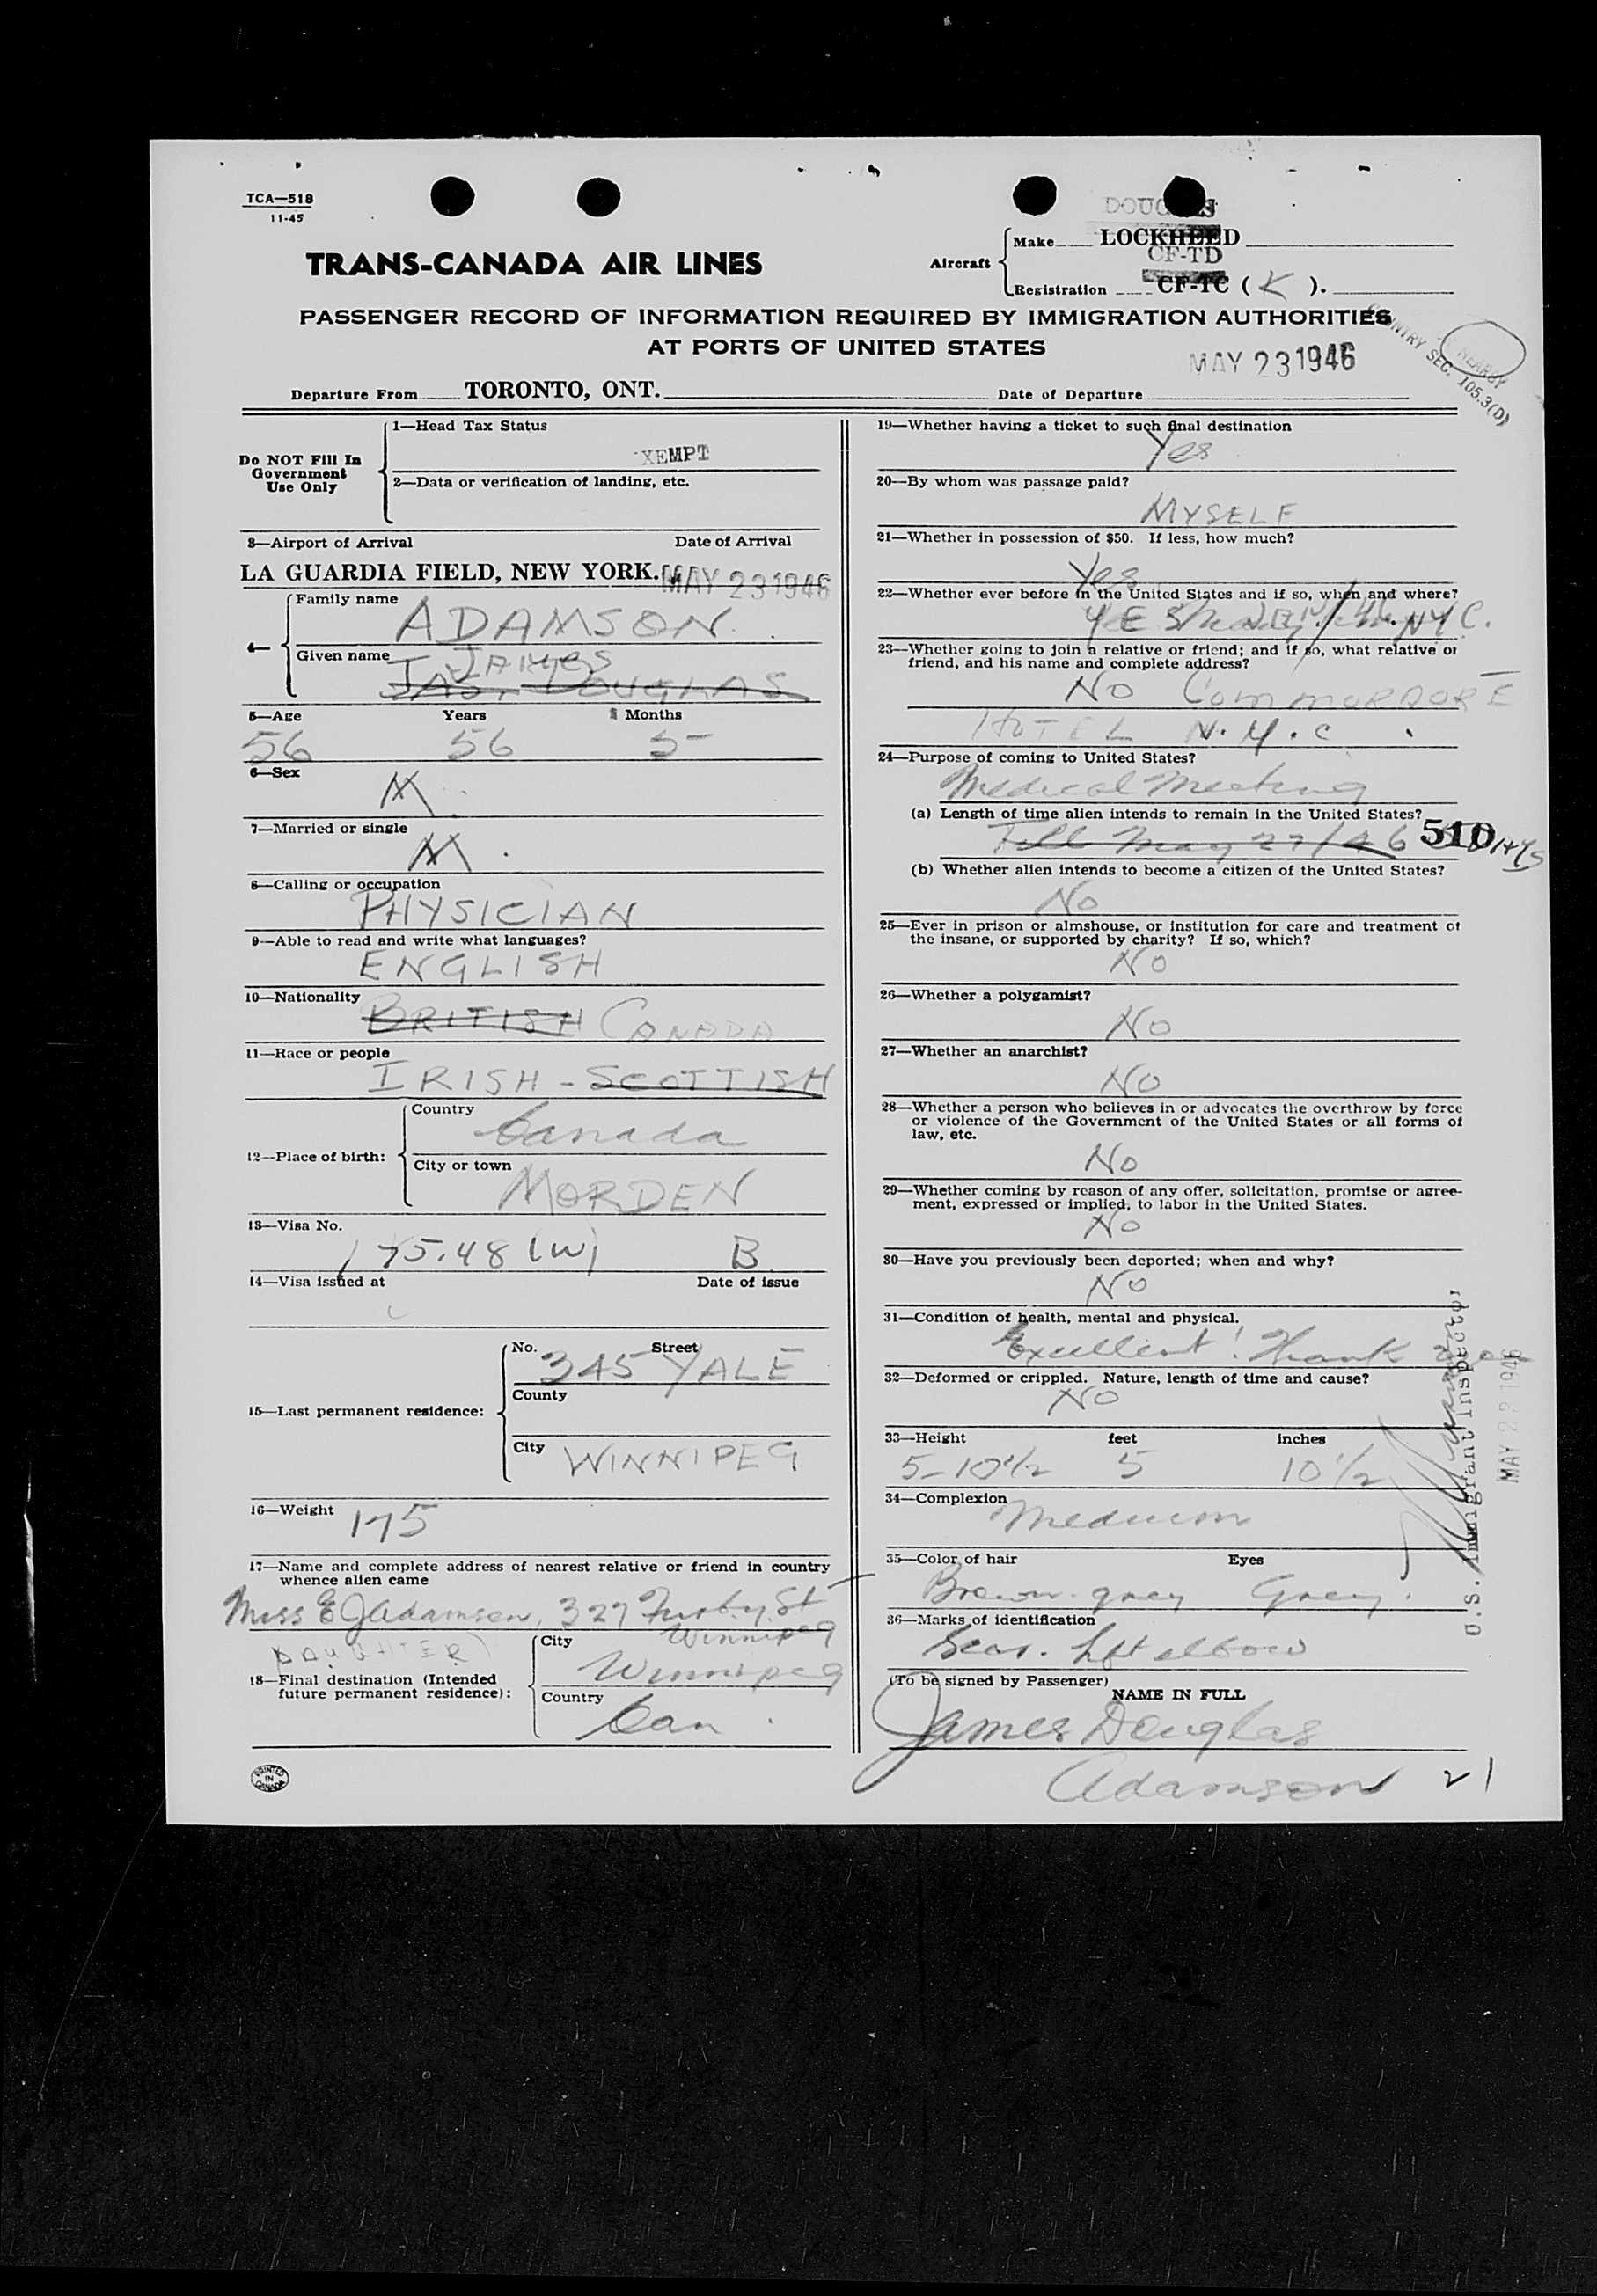 TCA—518
11-45
TRANS-CANADA AIR LINES
DOUGLAS
Aircraft
Make LOCKHEED
CF-TD
Registration CF-TC ( K ).
PASSENGER RECORD OF INFORMATION REQUIRED BY IMMIGRATION AUTHORITIES
AT PORTS OF UNITED STATES
MAY 23 1946
NEARBY
SEC. 105.3(D)
Departure From TORONTO, ONT. Date of Departure
Do NOT Fill In
Government
Use Only
1—Head Tax Status
XEMPT
2—Data or verification of landing, etc.
3—Airport of Arrival Date of Arrival
LA GUARDIA FIELD, NEW YORK. MAY 23 1946
4—
Family name
ADAMSON
Given name
JAMES
JAS. DOUGLAS
5—Age Years Months
56 56 5
6—Sex
M
7—Married or single
M.
8—Calling or occupation
PHYSICIAN
9—Able to read and write what languages?
ENGLISH
10—Nationality
BRITISH CANADA
11—Race or people
IRISH - SCOTTISH
12—Place of birth:
Country
Canada
City or town
MORDEN
13—Visa No.
175.48 (W) B
14—Visa issued at Date of issue
15—Last permanent residence:
No. Street
345 YALE
County
City
WINNIPEG
16—Weight
175
17—Name and complete address of nearest relative or friend in country
whence alien came
Miss E J Adamson, 327 Furby St
Winnipeg
DAUGHTER)
18—Final destination (Intended
future permanent residence):
City
Winnipeg
Country
Can.
PRINTED
IN
CANADA
19—Whether having a ticket to such final destination
Yes
20—By whom was passage paid?
MYSELF
21—Whether in possession of $50. If less, how much?
Yes
22—Whether ever before in the United States and if so, when and where?
YES /46 NYC.
23—Whether going to join a relative or friend; and if so, what relative or
friend, and his name and complete address?
NO COMMORDORE
HOTEL N.Y.C.
24—Purpose of coming to United States?
Medical Meeting
(a) Length of time alien intends to remain in the United States?
Till May 27/46 510 DAYS
(b) Whether alien intends to become a citizen of the United States?
No
25—Ever in prison or almshouse, or institution for care and treatment of
the insane, or supported by charity? If so, which?
No
26—Whether a polygamist?
No
27—Whether an anarchist?
NO
28—Whether a person who believes in or advocates the overthrow by force
or violence of the Government of the United States or all forms of
law, etc.
No
29—Whether coming by reason of any offer, solicitation, promise or agree-
ment, expressed or implied, to labor in the United States.
No
30—Have you previously been deported; when and why?
No
31—Condition of health, mental and physical.
Excellent! Thank you
32—Deformed or crippled. Nature, length of time and cause?
NO
33—Height feet inches
5-10 1/2 5 10 1/2
34—Complexion
Medium
35—Color of hair Eyes
Brown-grey Grey.
36—Marks of identification
Scar. Lft elbow
(To be signed by Passenger)
NAME IN FULL
James Douglas
Adamson
21
U.S. Immigrant Inspector
MAY 23 1946